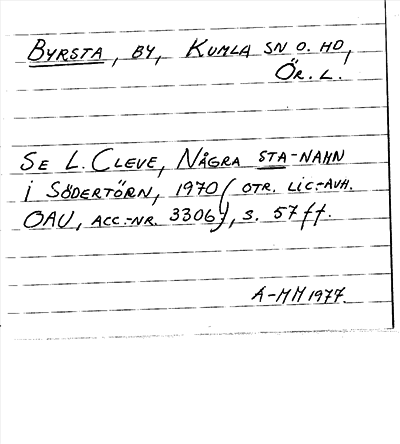 BYRSTA, BY, KUMLA SN O. HD,
ÖR. L.
SE L. CLEVE, NÅGRA STA-NAMN
I SÖDERTÖRN, 1970 (OTR. LIC-AVH.
OAU, ACC.-NR. 3306), S. 57 ff.
A-MM 1977.